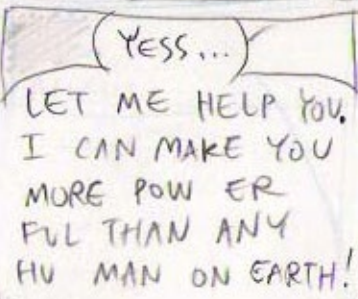 YESS...
LET ME HELP YOU.
I CAN MAKE YOU
MORE POW ER
FUL THAN ANY
HU MAN ON EARTH!